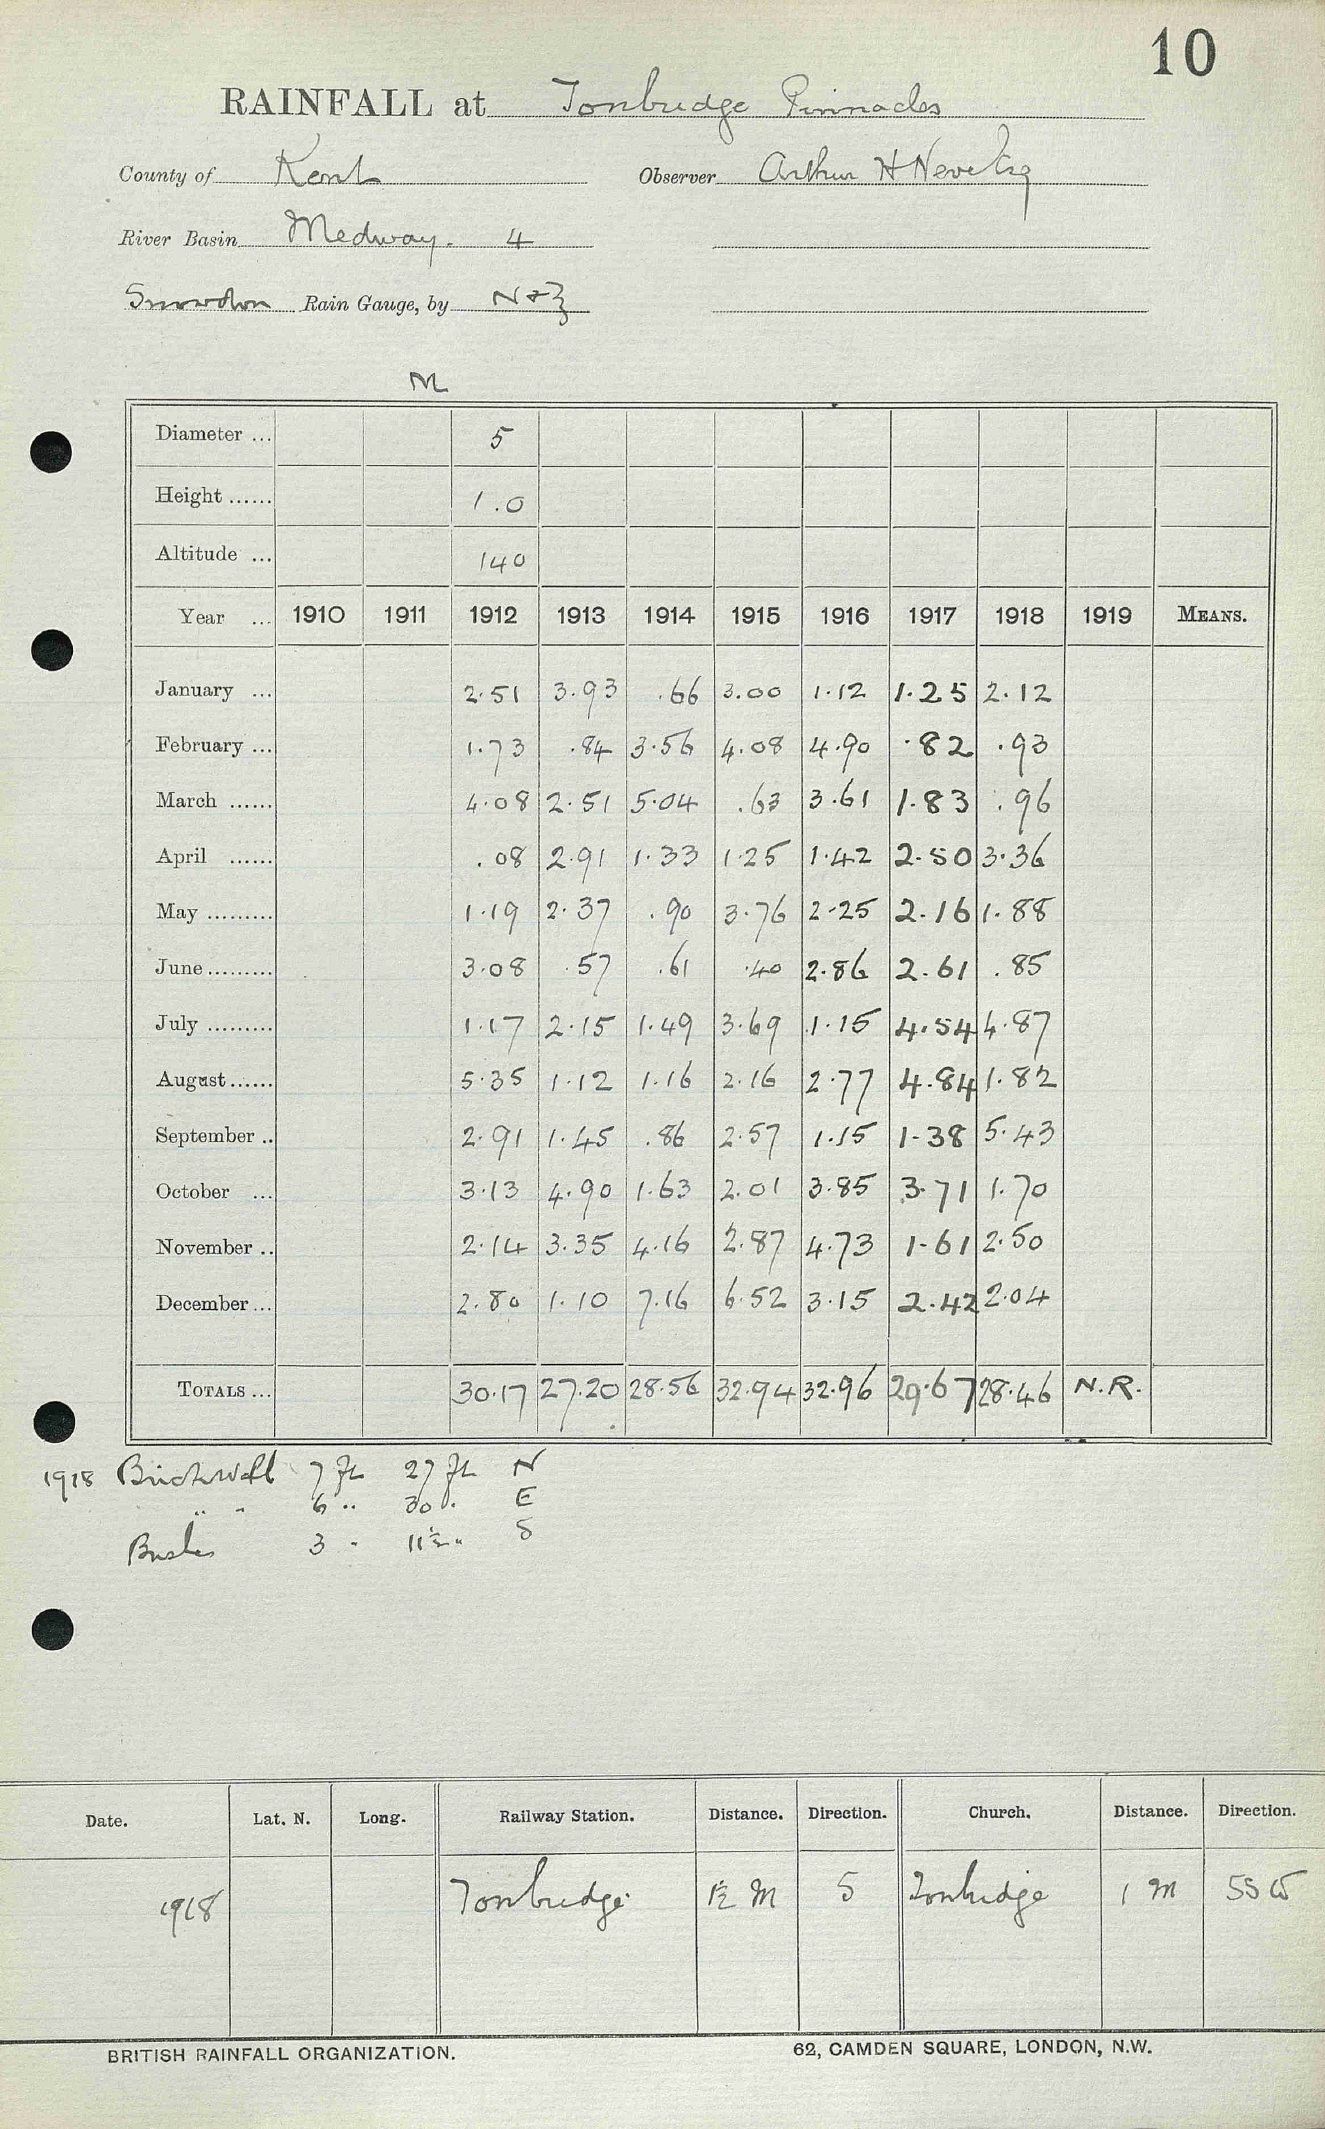 10
RAINFALL at Tonbridge Pinnacles
County of Kent Observer Arthur H Neve Esq
River Basin Medway. 4
Snowdon Rain Gauge, by N & Z
M
Diameter ... 5
Height ...... 1.0
Altitude ... 140
Year ... 1910 1911 1912 1913 1914 1915 1916 1917 1918 1919 MEANS.
January ... 2.51 3.93 .66 3.00 1.12 1.25 2.12
February ... 1.73 .84 3.56 4.08 4.90 .82 .93
March ...... 4.08 2.51 5.04 .63 3.61 1.83 .96
April ...... .08 2.91 1.33 1.25 1.42 2.50 3.36
May ......... 1.19 2.37 .90 3.76 2.25 2.16 1.88
June ......... 3.08 .57 .61 .40 2.86 2.61 .85
July ......... 1.17 2.15 1.49 3.69 1.15 4.54 4.87
August ...... 5.35 1.12 1.16 2.16 2.77 4.84 1.82
September .. 2.91 1.45 .86 2.57 1.15 1.38 5.43
October ... 3.13 4.90 1.63 2.01 3.85 3.71 1.70
November .. 2.14 3.35 4.16 2.87 4.73 1.61 2.50
December ... 2.80 1.10 7.16 6.52 3.15 2.42 2.04
TOTALS ... 30.17 27.20 28.56 32.94 32.96 29.67 28.46 N.R.
1918 Brickwall 7 ft 27 ft N
" " 6 " 30 " E
Bushes 3 " 11½ " S
Date. Lat. N. Long. Railway Station. Distance. Direction. Church. Distance. Direction.
1918 Tonbridge 1½ M S Tonbridge 1 M SSW
BRITISH RAINFALL ORGANIZATION. 62, CAMDEN SQUARE, LONDON, N.W.